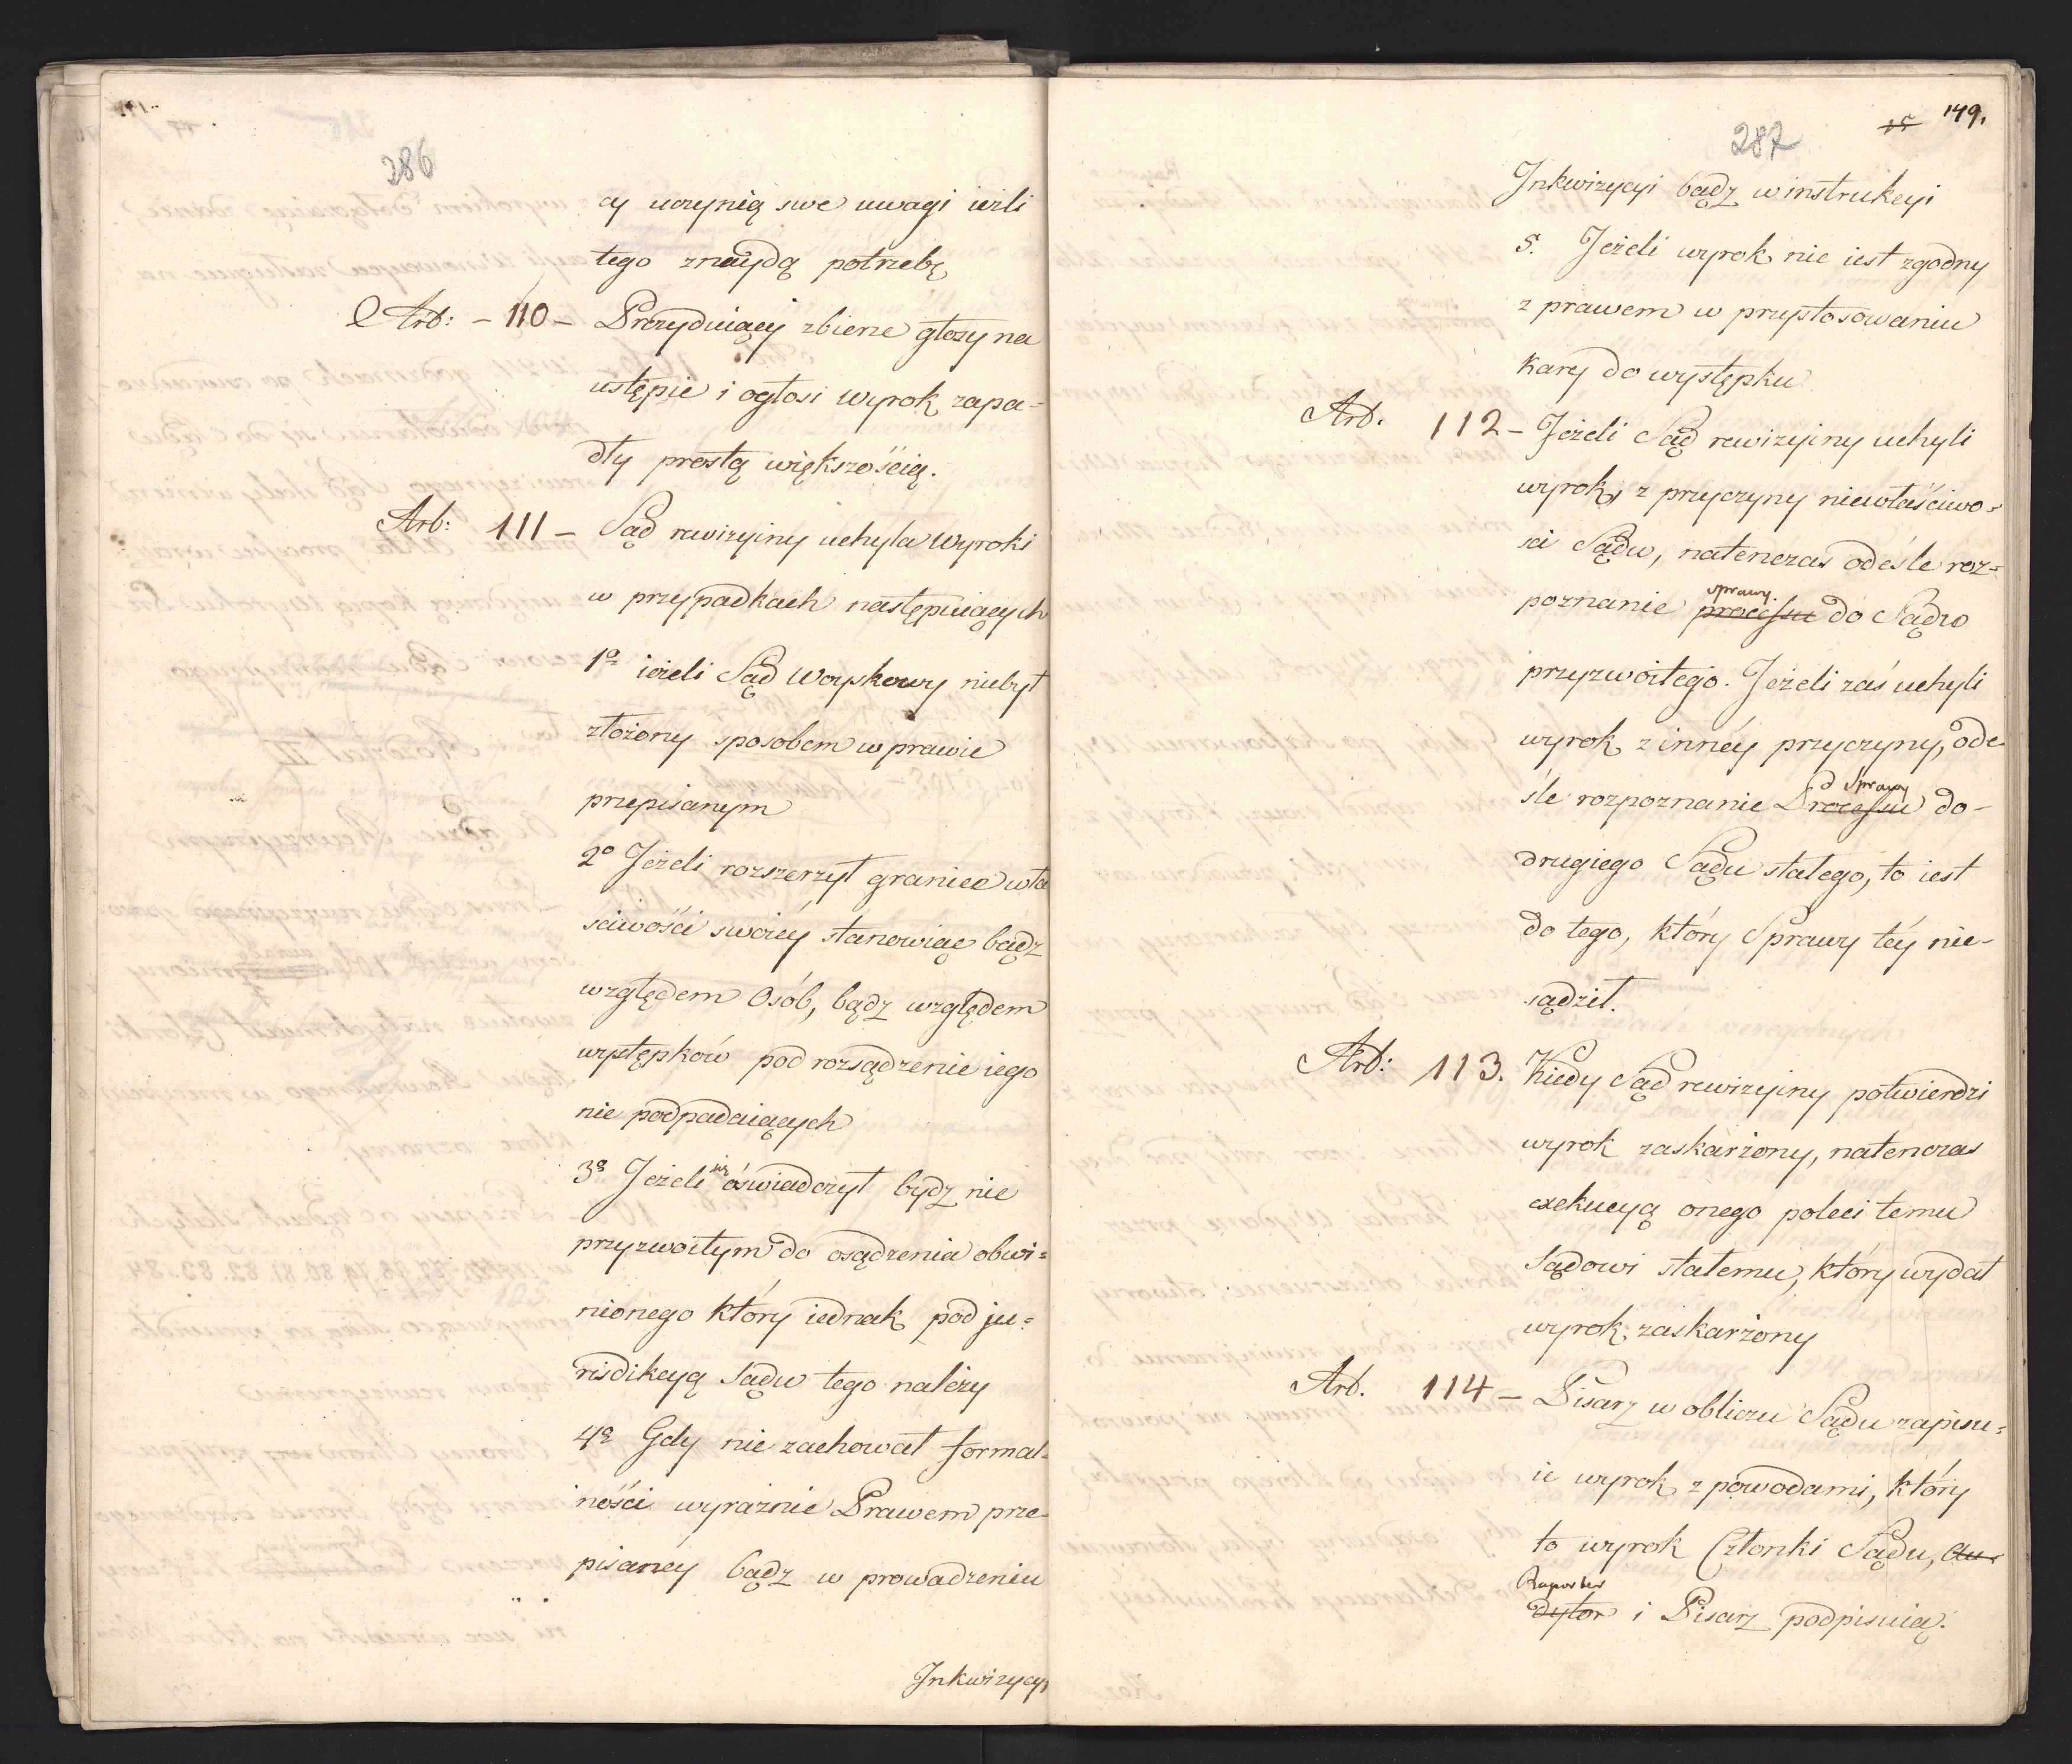 286
cy uczynią swe uwagi ieżli
tego znaydą potrzebę
Art: – 110 – Prezyduiący zbierze głosy na
ustępie i ogłosi wyrok zapa=
dły prostą większością.
Art: 111 – Sąd rewizyiny uchyla Wyroki
w przypadkach następuiących
1º ieżeli Sąd Woyskowy niebył
złożony sposobem w prawie
przepisanym
2º Jeżeli rozszerzył granice wła
sciwości swoiéy stanowiąc bądz
względem Osób, bądz względem
występków pod rozsądzenie iego
nie podpadaiących
3º Jeżeli się oświadczył bydz nie
przyzwoitym do osądzenia obwi=
nionego który iednak pod ju=
risdikcyą Sądu tego należy
4º Gdy nie zachował formal=
ności wyraźnie Prawem prze=
pisanéy bądz w prowadzeniu
Inkwizycyi
149.
287
Inkwizycyi bądz w instrukcyi
5. Jeżeli wyrok nie iest zgodny
z prawem w przystosowaniu
kary do występku
Art. 112 – Jeżeli Sąd rewizyiny uchyli
wyrok, z przyczyny niewłaściwo=
sci Sądu, natenczas odeśle roz=
sprawy.
poznanie processu do Sądu
przyzwoitego. Jeżeli zaś uchyli
wyrok z innéy przyczyny, ode=
Sprawy
śle rozpoznanie Processu do-
drugiego Sądu stałego, to iest
do tego, który Sprawy téy nie-
sądził.
Art: 113. Kiedy Sąd rewizyiny potwierdzi
wyrok zaskarżony, natenczas
exekucyą onego poleci temu
Sądowi stałemu, który wydał
wyrok zaskarżony
Art. 114 – Pisarz w obliczu Sądu zapisu=
ie wyrok z powodami, który
to wyrok Członki Sądu, Au=
Raporter
dytor i Pisarz podpisuią.